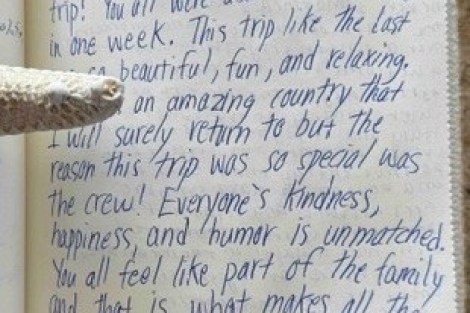 trip! You all were
in one week. This trip like the last
beautiful, fun, and relaxing.
an amazing country that
I will surely return to but the
reason this trip was so special was
the crew! Everyone's kindness,
happiness, and humor is unmatched.
You all feel like part of the family
and that is what makes all the